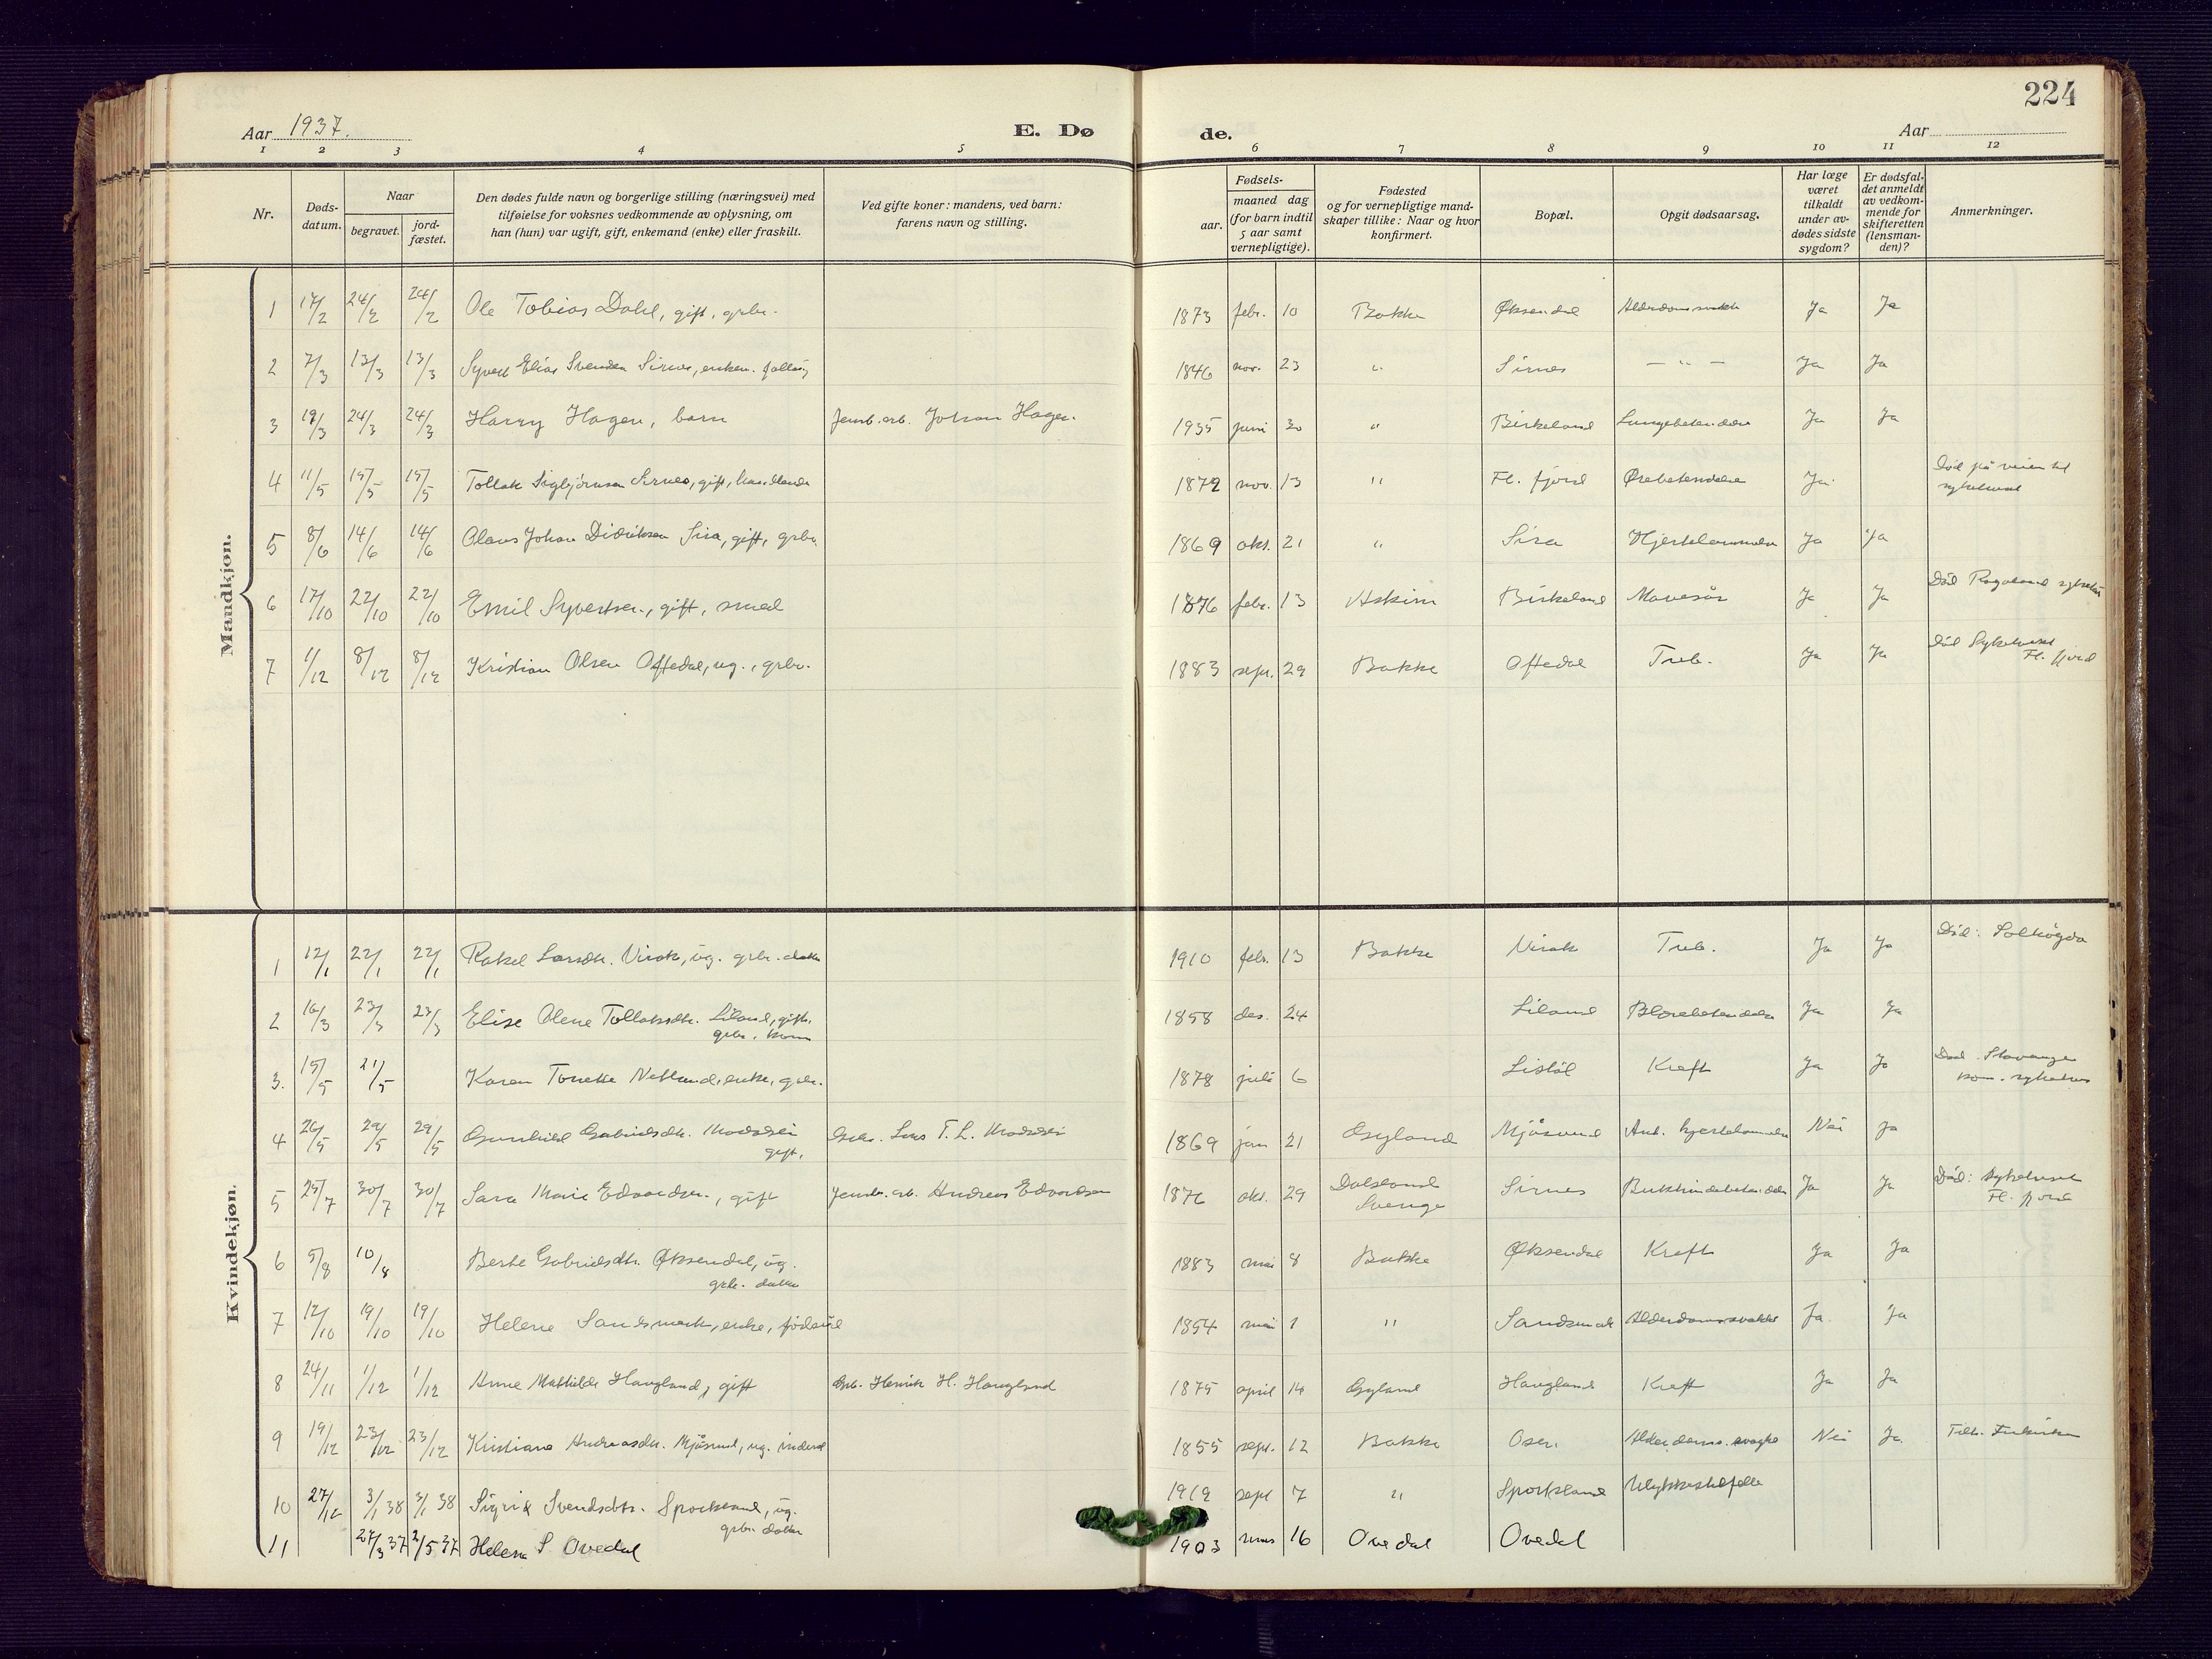 224
Aar 1937.
E. Dø
de.
Aar
1 2 3 4 5 6 7 8 9 10 11 12
Nr.
Døds-
datum.
Naar
begravet.
jord-
fæstet.
Den dødes fulde navn og borgerlige stilling (næringsvei) med
tilføielse for voksnes vedkommende av oplysning, om
han (hun) var ugift, gift, enkemand (enke) eller fraskilt.
Ved gifte koner: mandens, ved barn:
farens navn og stilling.
Fødsels-
aar.
maaned dag
(for barn indtil
5 aar samt
vernepligtige).
Fødested
og for vernepligtige mand-
skaper tillike: Naar og hvor
konfirmert.
Bopæl.
Opgit dødsaarsag.
Har læge
været
tilkaldt
under av-
dødes sidste
sygdom?
Er dødsfal-
det anmeldt
av vedkom-
mende for
skifteretten
(lensman-
den)?
Anmerkninger.
Mandkjøn.
1 17/2 24/2 24/2 Ole Tobias Dahl, gift, grbr. 1873 febr. 10 Bakke Øksendal Ja Ja
2 7/3 13/3 13/3 Elias Svendsen Sirnes, enkem. 1846 nov. 23 " Sirnes — " — Ja Ja
3 19/3 24/3 24/3 Harry Hagen, barn Jernb. arb. Johan Hagen. 1935 juni 30 " Birkeland Ja Ja
4 11/5 15/5 15/5 Tollak Sigbjørnsen Sirnes, gift, 1872 nov. 13 " Fl. fjord Ørebetendelse Ja Død på veien til
sykehuset
5 8/6 14/6 14/6 Olaus Johan Didriksen Sira, gift, grbr. 1869 okt. 21 " Sira Hjertelammelse Ja Ja
6 17/10 22/10 22/10 Emil Syvertsen, gift, smed 1876 febr. 13 Askim Birkeland Mavesår Ja Ja Død Rogaland sykehus
7 1/12 8/12 8/12 Kristian Olsen Oftedal, ug., grbr. 1883 sept. 29 Bakke Oftedal Tub. Ja Ja Død Sykehuset
Fl. fjord
Kvindekjøn.
1 12/1 22/1 22/1 Rakel Larsdtr. Virak, ug. grbr. datter 1910 febr. 13 Bakke Virak Tub. Ja Ja Død: Solhøgda
2 16/3 23/3 23/3 Elise Olene Tollaksdtr. Liland, gift,
grbr. kone 1858 des. 24 Liland Ja Ja
3. 15/5 21/5 Karen Tonette Netland, enke, grbr. 1878 juli 6 Kreft Ja Ja Død Stavanger
kom. sykehus
4 26/5 29/5 29/5 Gunhild Gabrielsdtr.
gift, T. L. 1869 jan 21 Gyland Mjåsund Ant. hjertelammelse Nei Ja
5 25/7 30/7 30/7 Sara Marie Edvardsen, gift Jernb. arb. Andreas Edvardsen 1876 okt. 29 Dalsland
Sverige Sirnes Bukhindebetendelse Ja Ja Død: Sykehuset
Fl. fjord
6 5/8 10/8 Berte Gabrielsdtr. Øksendal, ug.
grbr. datter 1883 mai 8 Bakke Øksendal Kreft Ja Ja
7 12/10 19/10 19/10 Helene Sandsmark, enke, 1854 mai 1 " Sandsmark Ja. Ja
8 24/11 1/12 1/12 Anne Mathilde Haugland, gift Grb. Henrik H. Haugland 1875 april 14 Gyland Haugland Kreft Ja Ja
9 19/12 23/12 23/12 Kristiane Andreasdtr. Mjåsund, ug. 1855 sept. 12 Bakke Osen Nei Ja
10 27/12 3/1 38 3/1 38 Sigrid Svendsdtr. Sporkland, ug.
grbr. datter 1912 sept 7 " Sporkland Ulykkestilfelle
11 27/3 37 2/5 37 Helena S Ovedal 1903 mars 16 Ovedal Ovedal